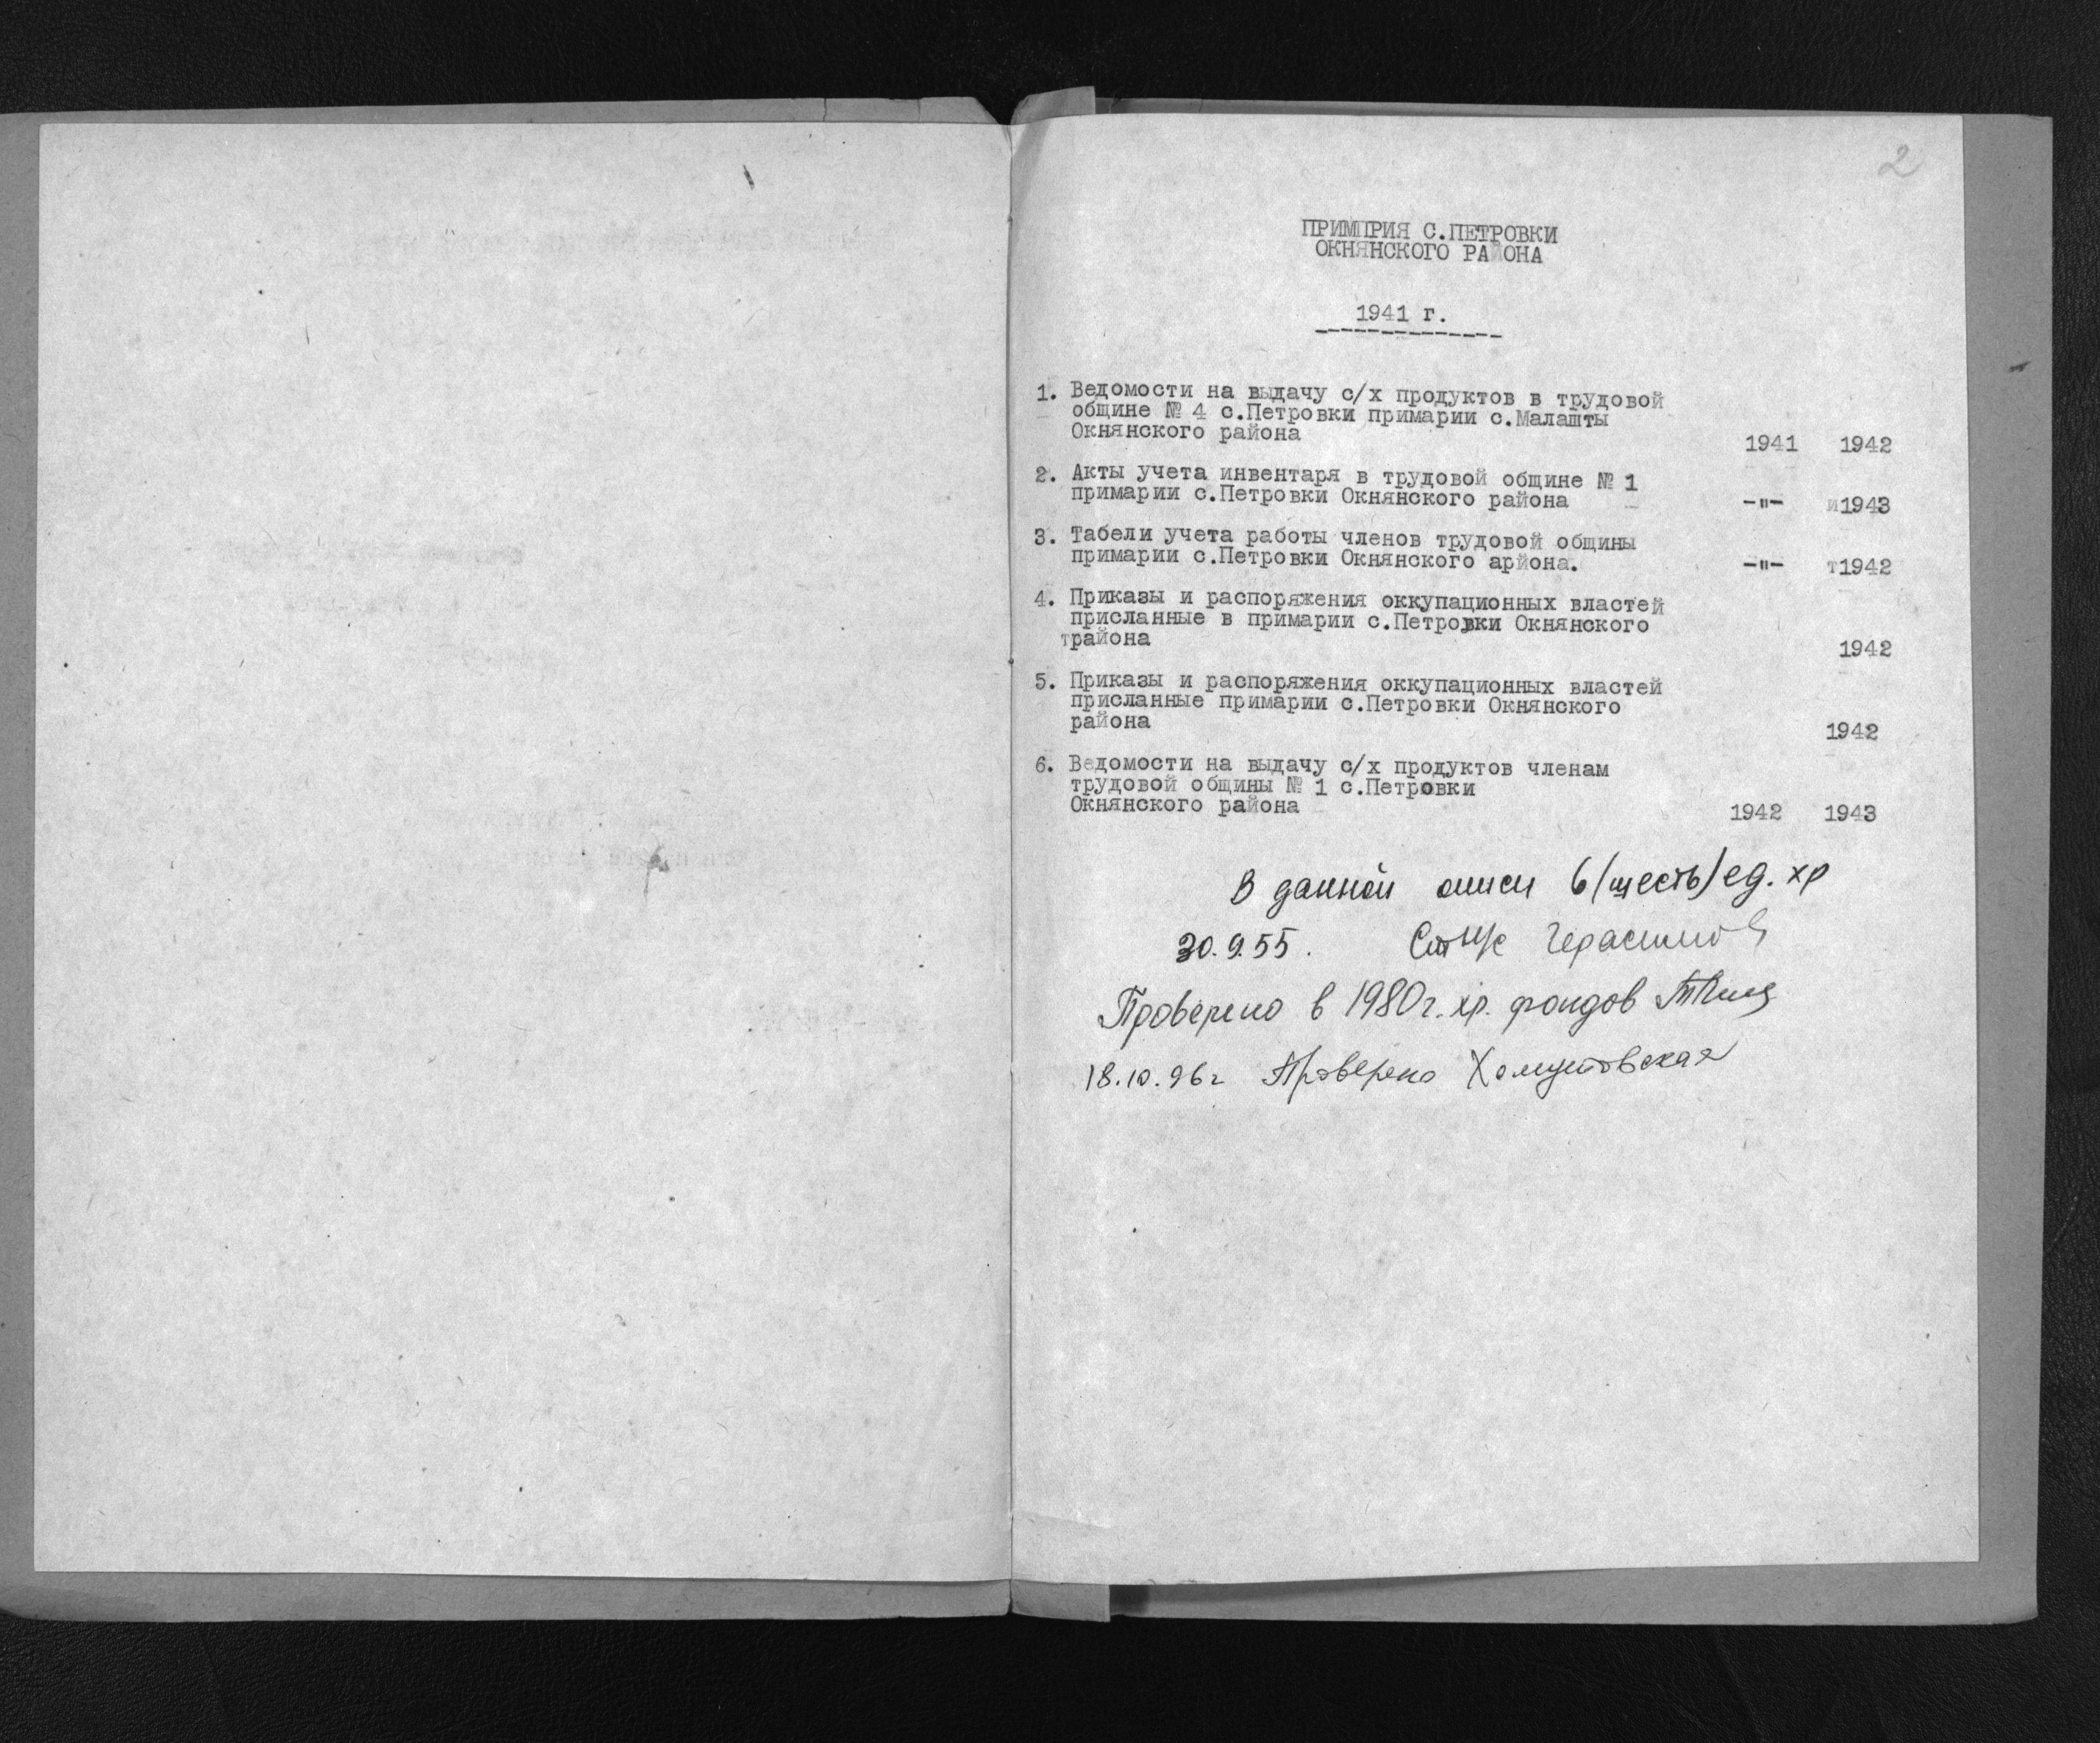 2
ПРИМПРИЯ С.ПЕТРОВКИ
ОКНЯНСКОГО РАЙОНА
1941 г.
1. Ведомости на выдачу с/х продуктов в трудовой
общине № 4 с.Петровки примарии с.Малашты
Окнянского района 1941 1942
2. Акты учета инвентаря в трудовой общине № 1
примарии с.Петровки Окнянского района -"- и1943
3. Табели учета работы членов трудовой общины
примарии с.Петровки Окнянского арйона. -"- т1942
4. Приказы и распоряжения оккупационных властей
присланные в примарии с.Петровки Окнянского
трайона 1942
5. Приказы и распоряжения оккупационных властей
присланные примарии с.Петровки Окнянского
района 1942
6. Ведомости на выдачу с/х продуктов членам
трудовой общины № 1 с.Петровки
Окнянского района 1942 1943
В данной описи 6/шесть/ед. хр
30.9.55. Герасимов
Проверено в 1980г. хр. фондов
18.10.96г Проверено Хомутовская